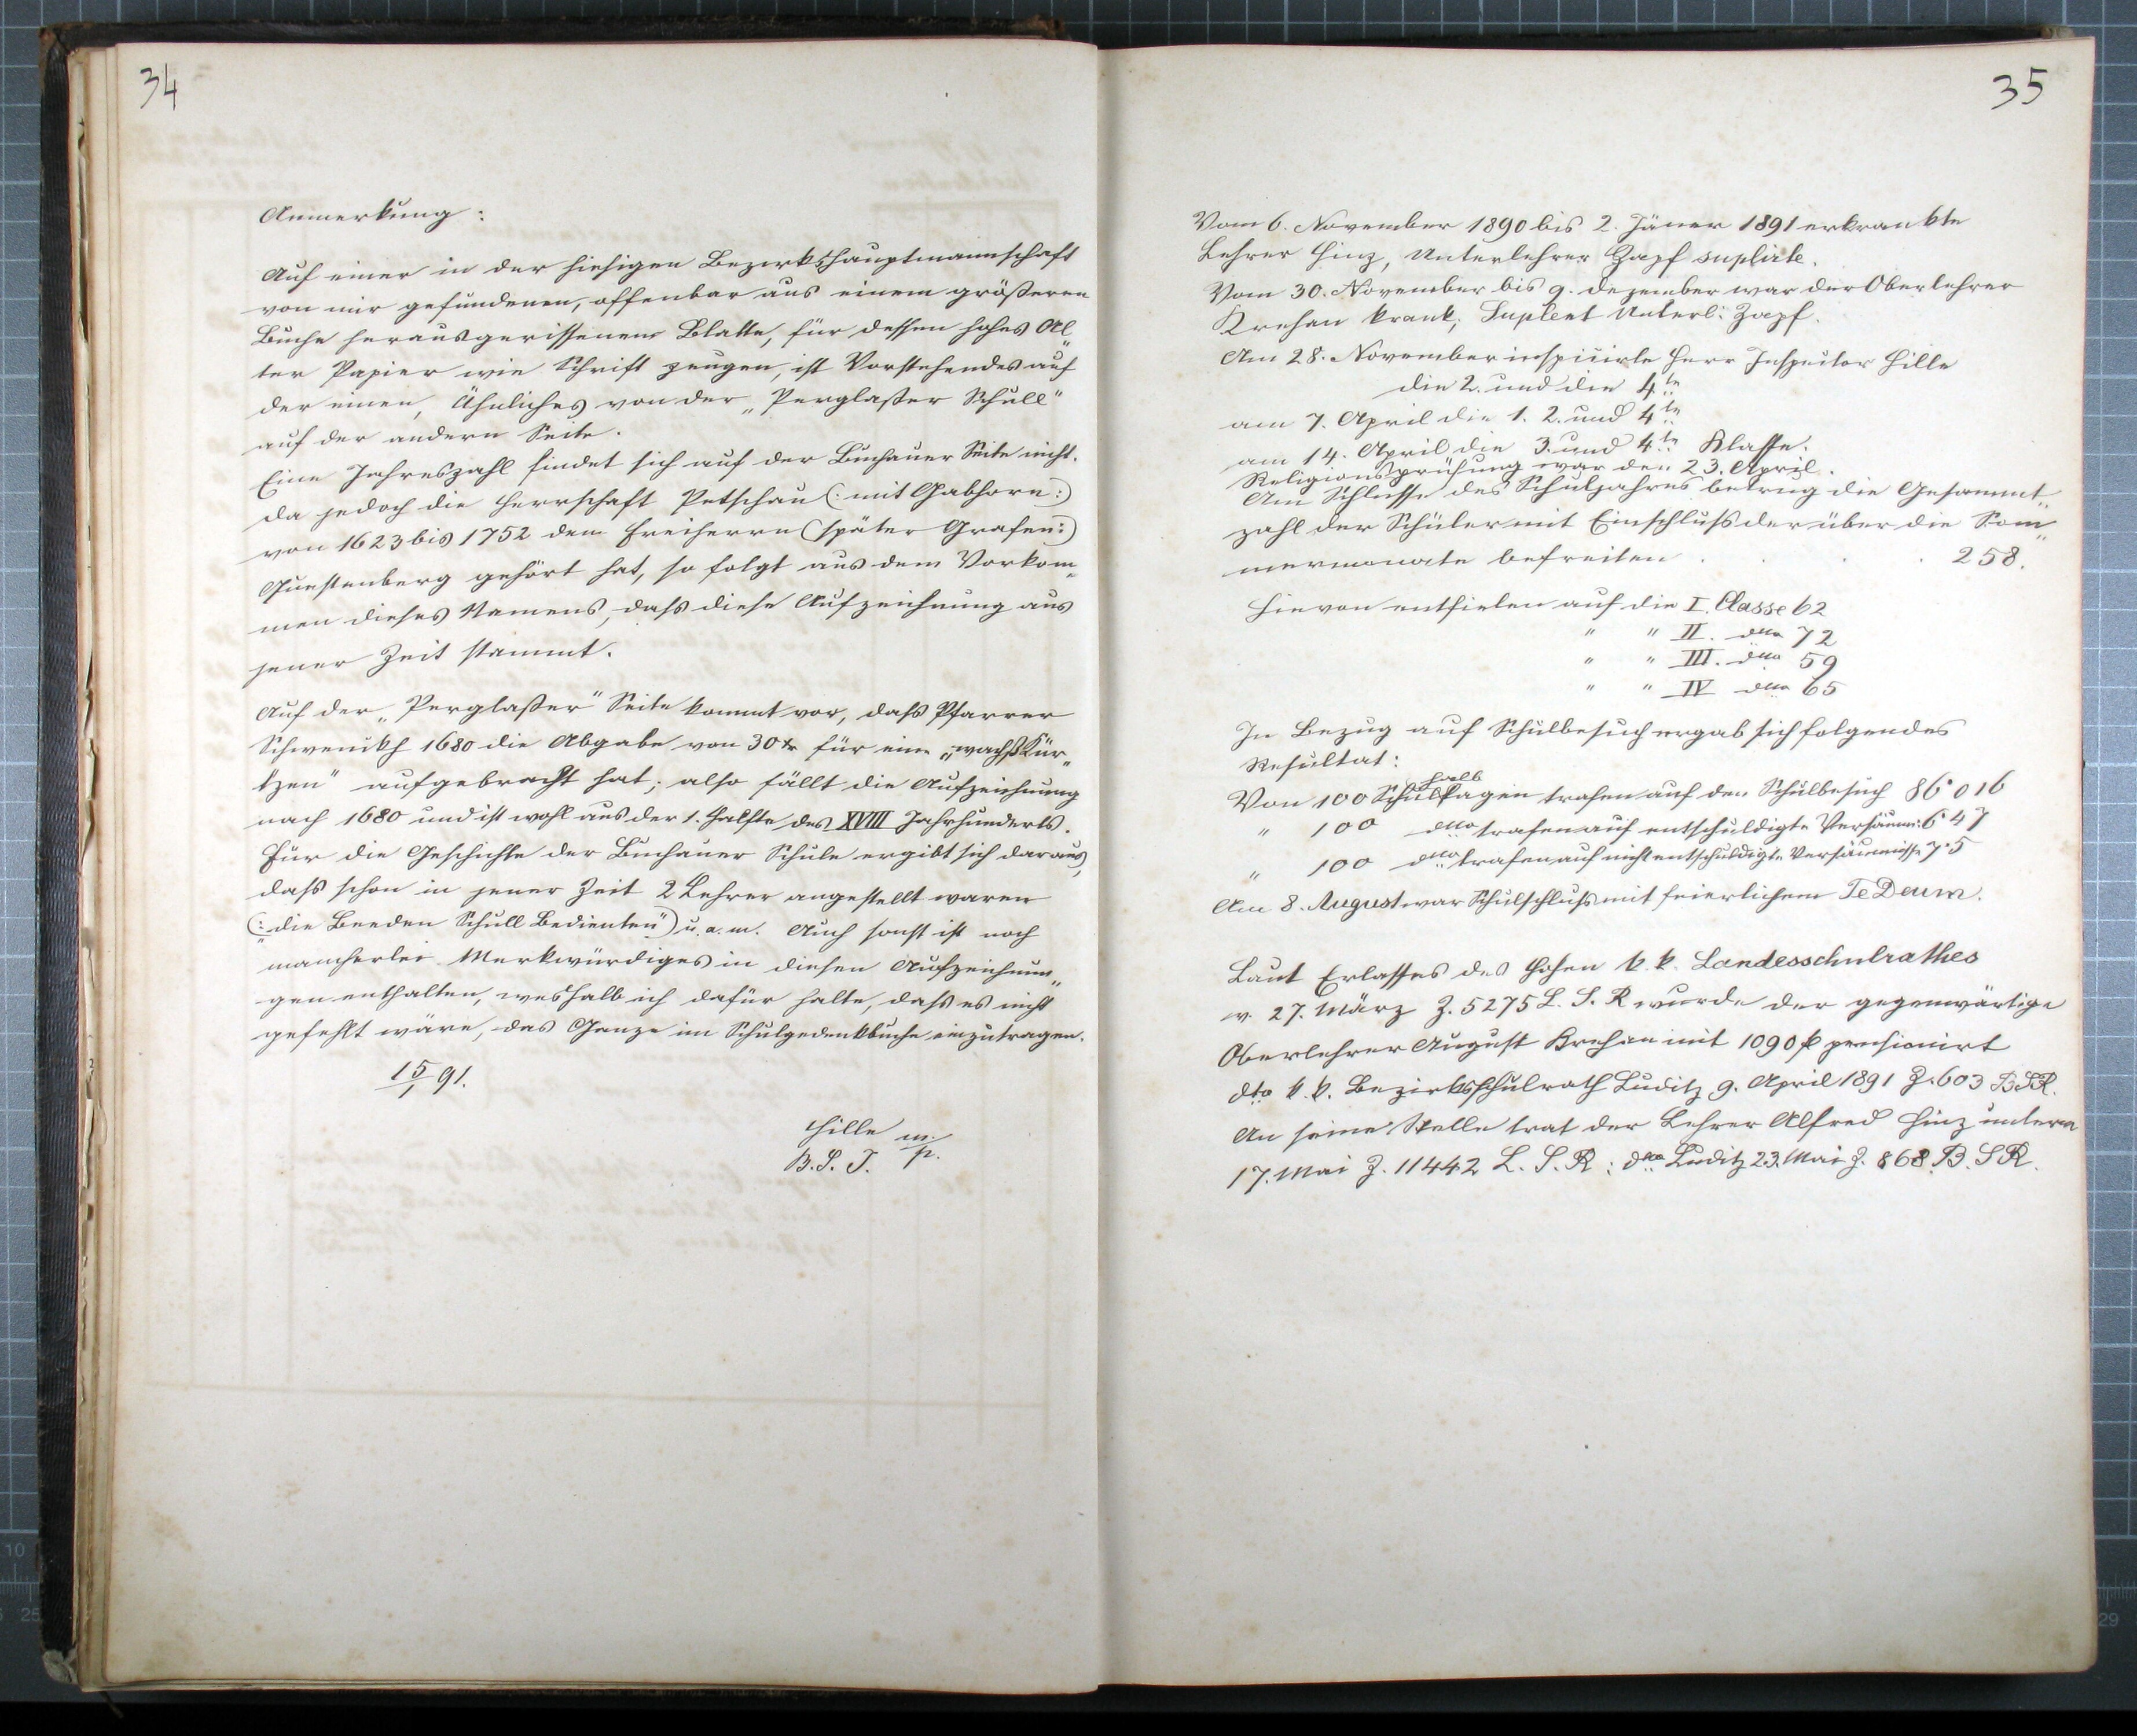 34
Anmerkung:
Auf einer in der hiesigen Bezirkshauptmannschaft
von mir gefundenen, offenbar aus einem größeren
Buche herausgerissenem Blatte, für dessen hohes Al„
ter Papier wie Schrift zeugen, ist Vorstehendes auf
der einen, Ähnliches von der „Perglaßer Schull"
auf der andern Seite.
Eine Jahreszahl findet sich auf der Buchauer Seite nicht.
da jedoch die Herrschaft Petschau (: mit Gabhorn:)
von 1623 bis 1752 dem Freiherrn (später Grafen:)
Questenberg gehört hat, so folgt aus dem Vorkom„
men dieses Namens, daß diese Aufzeichnung aus
jener Zeit stammt.
Auf der „Perglaßer" Seite kommt vor, daß Pfarrer
Schwenikh 1680 die Abgabe von 30 xr für eine „wachßKür„
tzen" aufgebracht hat; also fällt die Aufzeichnung
nach 1680 und ist wohl aus der 1. Hälfte des XVIII Jahrhunderts.
Für die Geschichte der Buchauer Schule ergibt sich daraus,
daß schon in jener Zeit 2 Lehrer angestellt waren
(: „die Beeden Schull Bedienten") u. a. m. Auch sonst ist noch
mancherlei Merkwürdiges in diesen Aufzeichnun„
gen enthalten, weshalb ich dafür halte, daß es nicht
gefehlt wäre, das Ganze im Schulgedenkbuche einzutragen.
15/1 91.
Hille m/p.
B. S. I.
35
Vom 6. November 1890 bis 2. Jäner 1891 erkrankte
Lehrer Hinz, Unterlehrer Zapf suplirte.
Vom 30. November bis 9. Dezember war der Oberlehrer
Krehan krank; Suplent Unterl: Zapf.
Am 28. November inspizirte Herr Inspector Hille
die 2. und die 4te
am 7. April die 1. 2. und 4te
am 14. April die 3. und 4te Klasse.
Religionsprüfung war den 23. April.
Am Schlusse des Schuljahres betrug die Gesammt„
zahl der Schüler mit Einschluß der über die Som„
mermonate befreiten . . . 258.
Hievon entfielen auf die I. Classe 62
" " II. dtto 72
" " III. dtto 59
" " IV dtto 65
In Bezug auf Schulbesuch ergab sich folgendes
Resultat:
Von 100 Schulhalbtagen trafen auf den Schulbesuch 86·016
" 100 dtto trafen auf entschuldigte Versäum: 6·47
" 100 dtto trafen auf nicht entschuldigte Versäumnisse 7·5
Am 8. August war Schulschluß mit feierlichem Te Deum.
Laut Erlasses des hohen k. k. Landesschulrathes
v. 27. März Z. 5275 L. S. R wurde der gegenwärtige
Oberlehrer August Krehan mit 1090 fl pensionirt
dto k. k. Bezirksschulrath Luditz 9. April 1891 Z. 603 B S R.
An seine Stelle trat der Lehrer Alfred Hinz unterm
17. Mai Z. 11442 L. S. R: dtto Luditz 23. Mai Z. 868. B. S R.